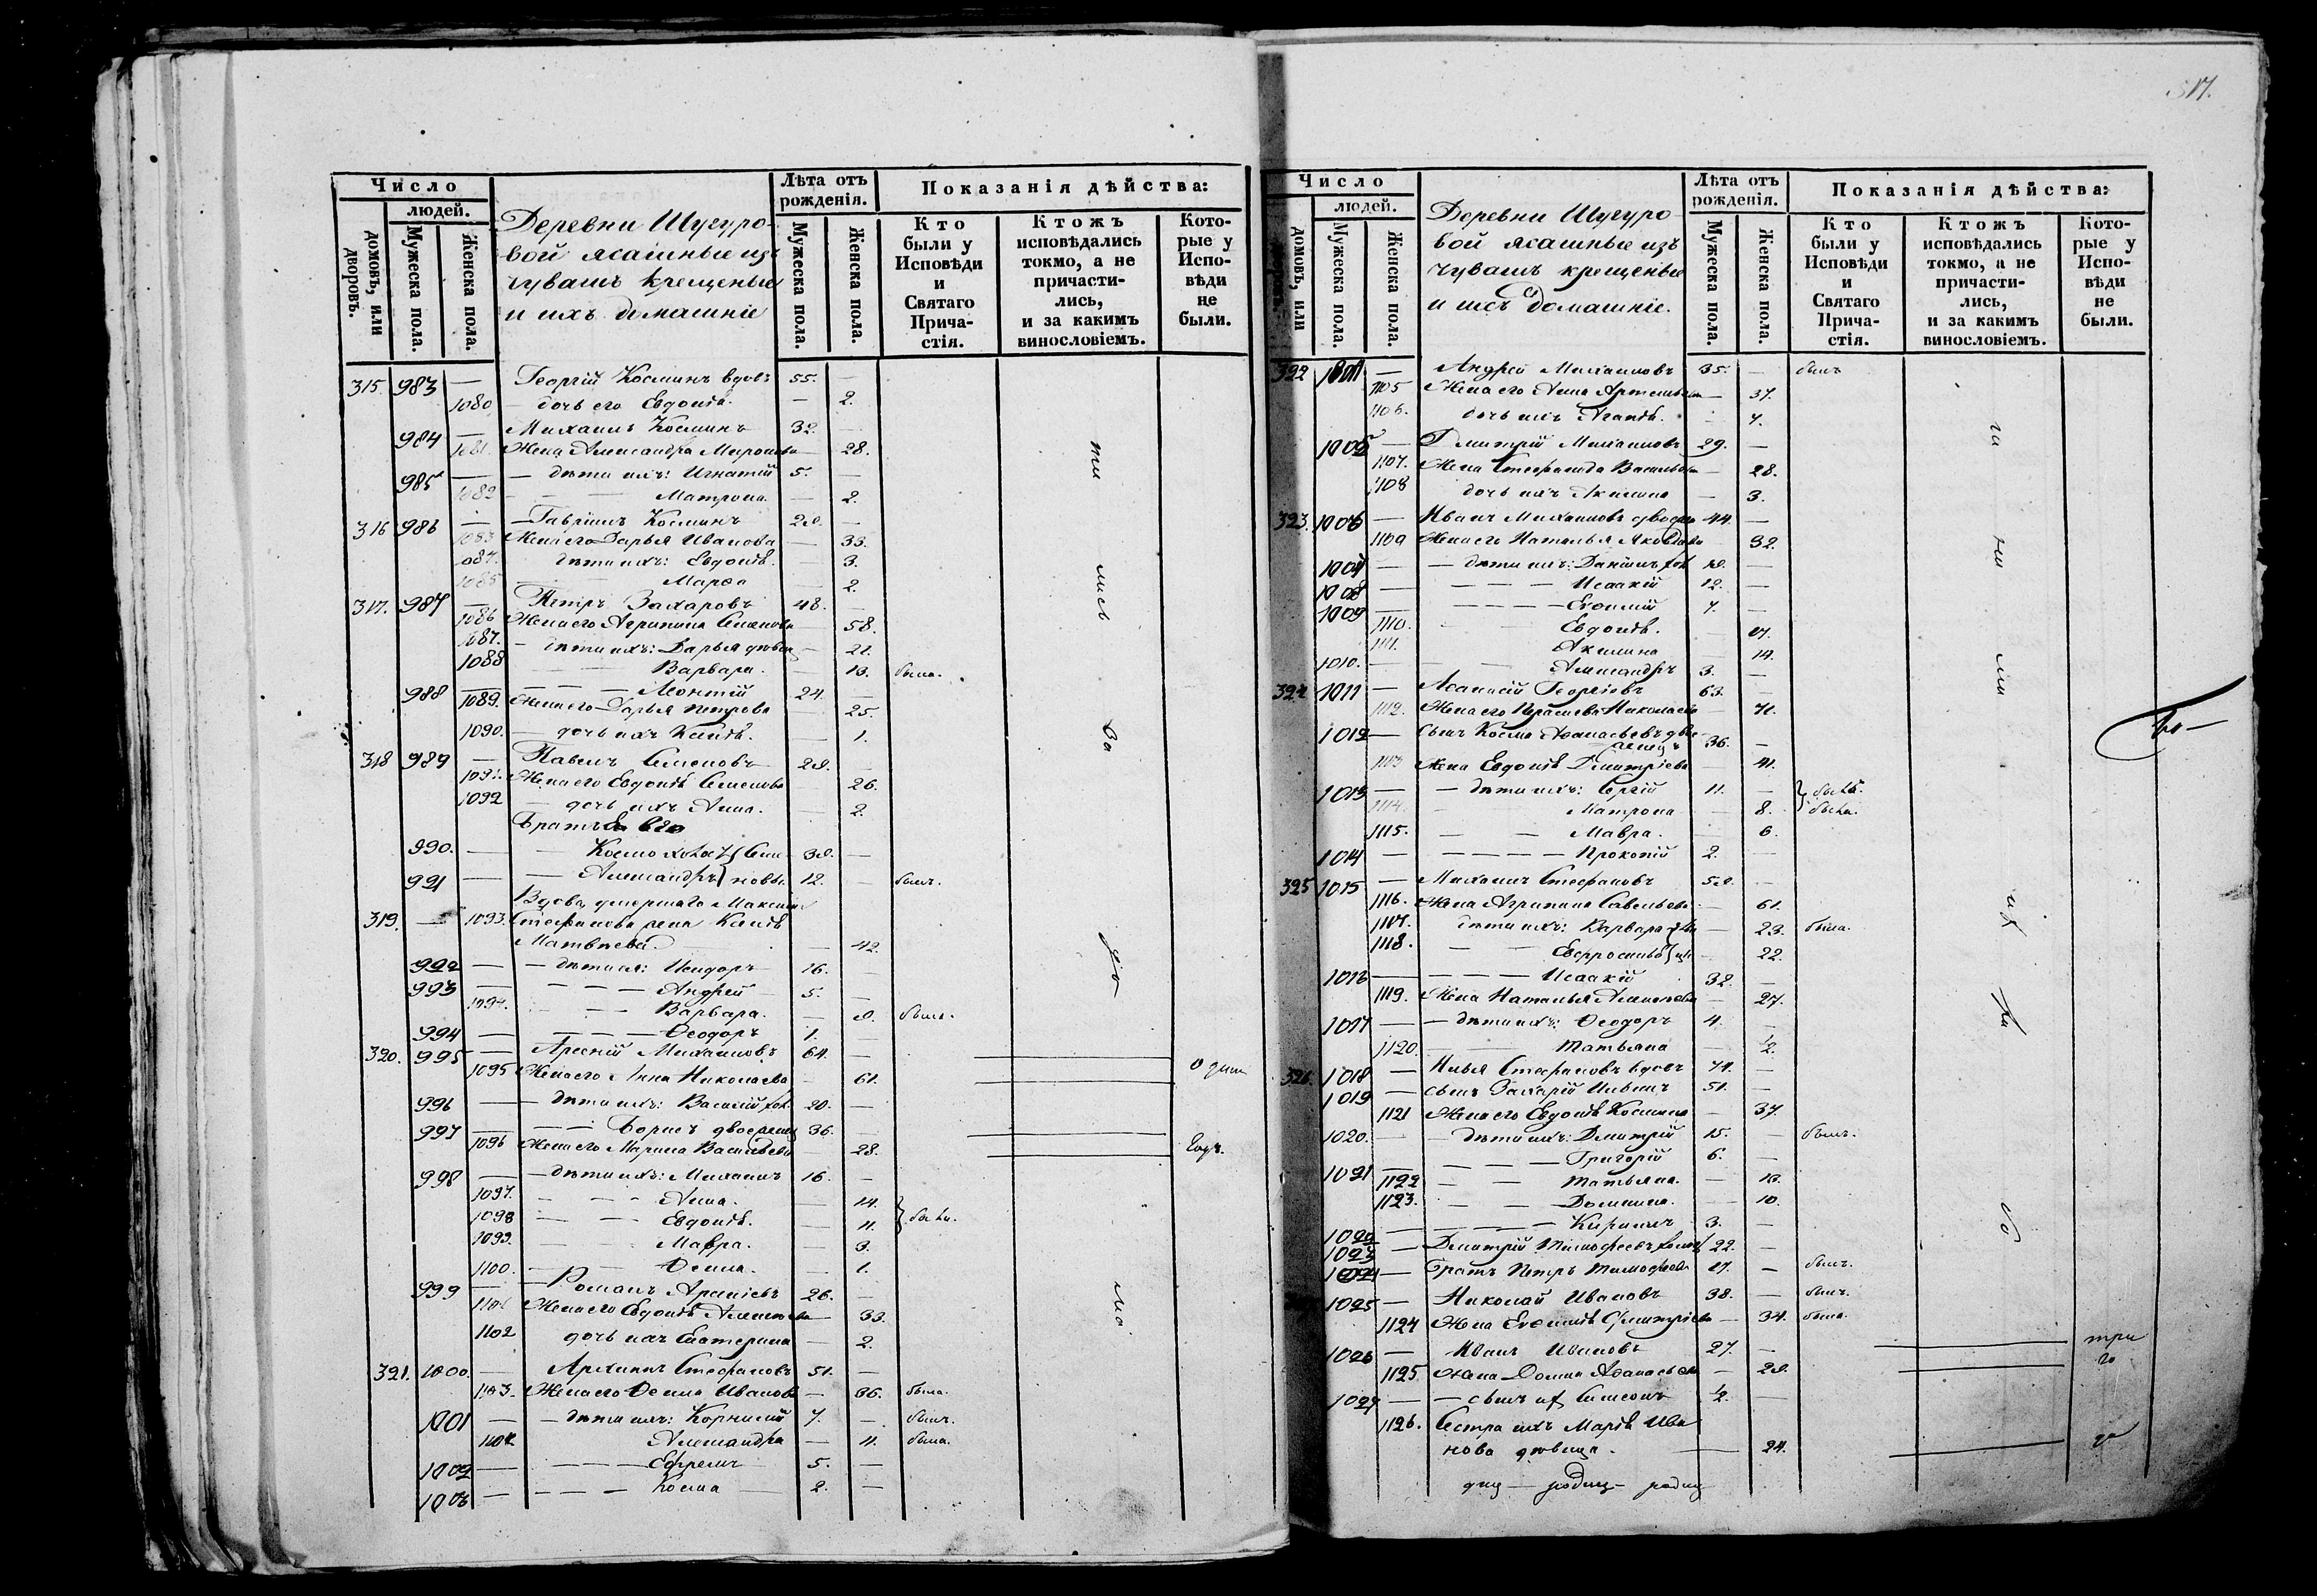 317.
Число
людей.
домовъ, или дворовъ.
Мужеска пола.
Женска пола.
Деревни Шугуро-
вой ясашные изъ
чувашъ крещеные
и ихъ домашніе
Лѣта отъ рожденія.
Мужеска пола.
Женска пола.
Показанія дѣйства:
Кто были у Исповѣди и Святаго Прича-стія.
Ктожъ исповѣдались токмо, а не причасти-лись, и за какимъ винословіемъ.
Кото-рые у Испо-вѣди не были.
315. 983 — Георгій Косминъ вдовъ 55. —
1080 — дочь его Евдокія. — 2.
984 — Михаилъ Косминъ 32. —
1081. Жена Александра Миронова — 28.
985 — дѣти ихъ: Игнатій 5. —
1082 — Матрона. — 2.
316 986 — Гавріилъ Косминъ —
1083 Жена его Дарья Иванова — 33.
1084. дѣти ихъ: Евдокія. — 3.
1085 — Марѳа — 2.
317. 987 — Петръ Захаровъ 48. —
1086 Жена его Агрипина Семенова — 58.
1087. — дѣти ихъ: Дарья дѣвица — 21.
1088 — Варвара. — 13. была.
988 — — Леонтій 24. —
1089. Жена его Дарья Петрова — 25.
1090. — дочь ихъ — 1.
318 989 — Павелъ Семеновъ —
1091. Жена его Евдокія Семенова — 26.
1092 — дочь ихъ Анна. — 2.
Братья его
990. — Косма холостъ } Семе- —
991 — — Александръ } новы. 12. — былъ.
Вдова умершаго Максима
319. — 1093. Стефанова жена
Матвѣева. — 42
992 — — дѣти ея: Исидоръ 16. —
993 — — Андрей 5. —
1094. — Варвара. — была.
994 — — Ѳеодоръ 1. —
320. 995 — Арсеній Михаиловъ 64. —
1095 Жена его Анна Николаева — 61. одинъ
996 — — дѣти ихъ: Василій хол. 20. —
997 — — Борисъ двоеженецъ 36. —
1096 Жена его Марина Васильева — 28. годъ.
998 — — дѣти ихъ: Михаилъ 16. —
1097. — Анна. — 14.
1098 — Евдокія. — 11. } были.
1099. — Мавра. — 3.
1100. — Ѳекла. — 1.
999 — — Романъ Арсеніевъ 26. —
1101 Жена его Евдокія Алексѣева — 33.
1102 дочь ихъ Екатерина — 2.
321. 1000. — Архипъ Стефановъ 51. —
1103. Жена его Ѳекла Иванова — 36. была.
1001 — — дѣти ихъ: Корнилій 7. — былъ.
1104 Александра — 11. была.
1002 — — Ефремъ 5. —
1003 — — Косма — 2. —
Число
людей.
домовъ, или дворовъ.
Мужеска пола.
Женска пола.
Деревни Шугуро-
вой ясашные изъ
чувашъ крещеные
и ихъ домашніе.
Лѣта отъ рожденія.
Мужеска пола.
Женска пола.
Показанія дѣйства:
Кто были у Исповѣди и Святаго Прича-стія.
Ктожъ исповѣдались токмо, а не причасти-лись, и за какимъ винословіемъ.
Кото-рые у Испо-вѣди не были.
322 1004 — Андрей Михаиловъ 35. — былъ
1105 Жена его Анна Артемьева — 37.
1106. дочь ихъ Агаѳія. — 7.
1005 — Дмитрій Михаиловъ 29. —
1107. Жена Стефанида Васильева — 28.
1108 дочь ихъ Акилина — 3.
323. 1006 — Иванъ Михаиловъ двоеж. 44. —
1109 Жена его Наталья Яковлева 32.
1007 — — дѣти ихъ: Даніилъ хол. —
1008 — — Исаакій 12. —
1009 — — Евѳимій 7. —
1110. — Евдокія. — 17.
1111. Акилина — 14.
1010. — — Александръ 3. —
324 1011 — Аѳанасій Георгіевъ 63. —
1112. Жена его Параскева Николаева — 71.
1012 — Сынъ Косма Аѳанасьевъ двое-
женецъ 36. —
1113 Жена Евдокія Дмитріева — 41.
1013 — — дѣти ихъ: Сергій 11. — } былъ.
1114. Матрона — 8. } была.
1115. — — Мавра. — 6.
1014 — — Прокопій 2. —
325 1015 — Михаилъ Стефановъ —
1116. Жена Агрипина Савельева — 61.
1117. дѣти ихъ: Варвара } дѣви- — 23. была.
1118. — Евфросинія } цы — 22.
1016 — — Исаакій 32. —
1119. Жена Наталья Алексѣева — 27.
1017 — — дѣти ихъ: Ѳеодоръ 4. —
1120. — Татьяна ½.
326. 1018 — Илья Стефановъ вдовъ 74. —
1019 — Сынъ Захарій Ильинъ 51. —
1121 Жена его Евдокія Космина — 37.
1020. — — дѣти ихъ: Дмитрій 15. — былъ.
1021 — — Григорій 6. —
1122 — Татьяна. — 13.
1123. — Домника. — 10.
1022 — — Кириллъ 3. —
1023 — Дмитрій Тимофеевъ холостъ 22. —
1024 — Братъ Петръ Тимофеевъ 17. — былъ.
1025 — Николай Ивановъ 38. — былъ.
1124 Жена Евѳимія Дмитріева — 34. была.
1026 — Иванъ Ивановъ 27. — три
1125 Жена Домна Аѳанасьева — го
1027 — — сынъ их Симеонъ ½. —
1126. Сестра ихъ Марія Ива
нова дѣвица. — 24. да